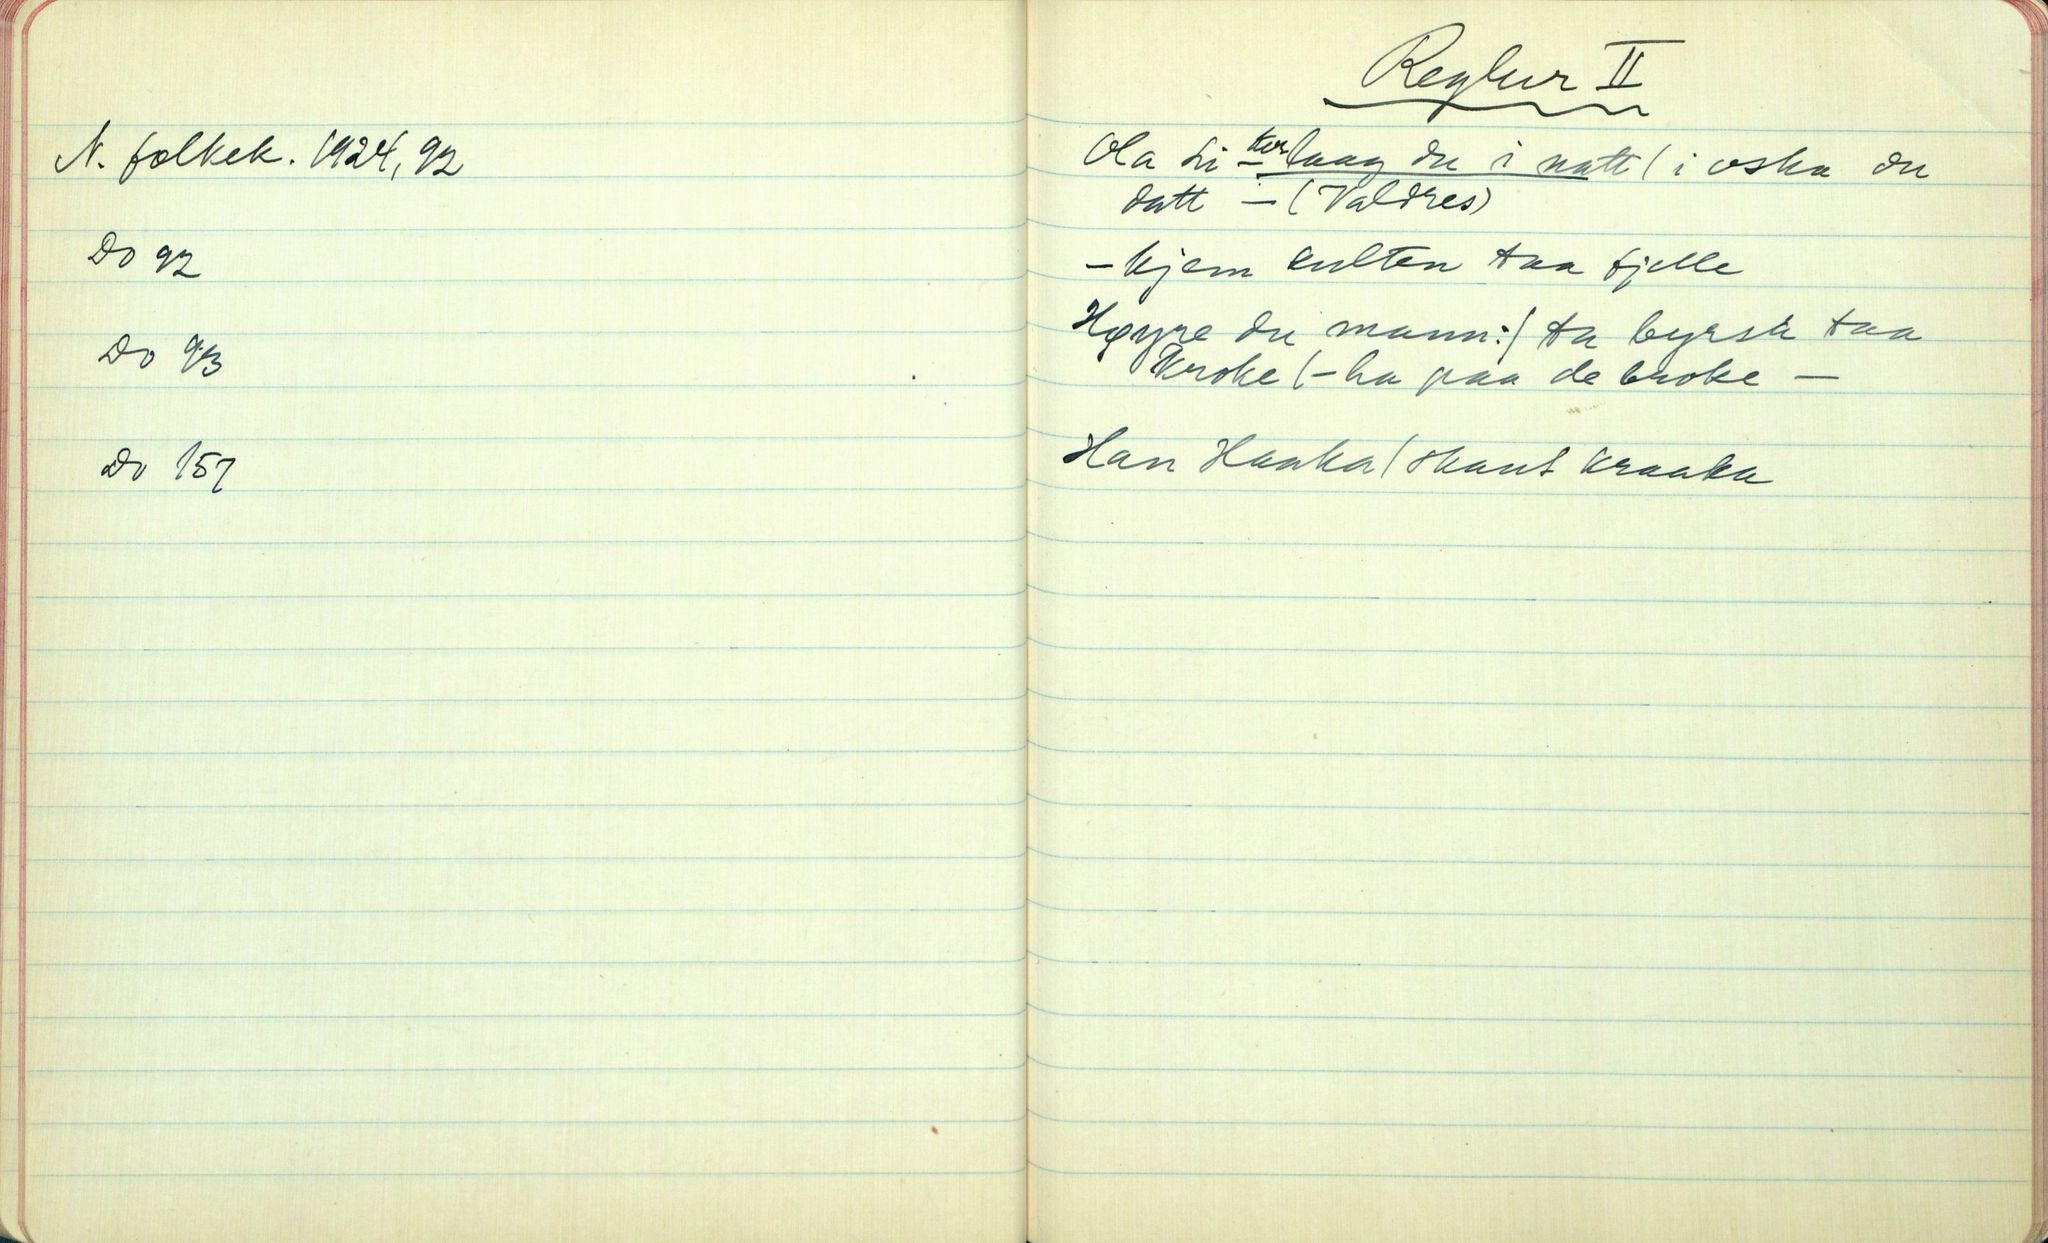 Reglur II
N. folkek. 1924, 92
Ola Li - kor laag du i natt / i oska du
datt - (Valdres)
Do 92
- kjem kulten taa fjelle
Do 93
Høyre du mann:/ ta byrsa taa
kroke / - ha paa de broke -
Do 157
Han Haaka / skaut kraaka